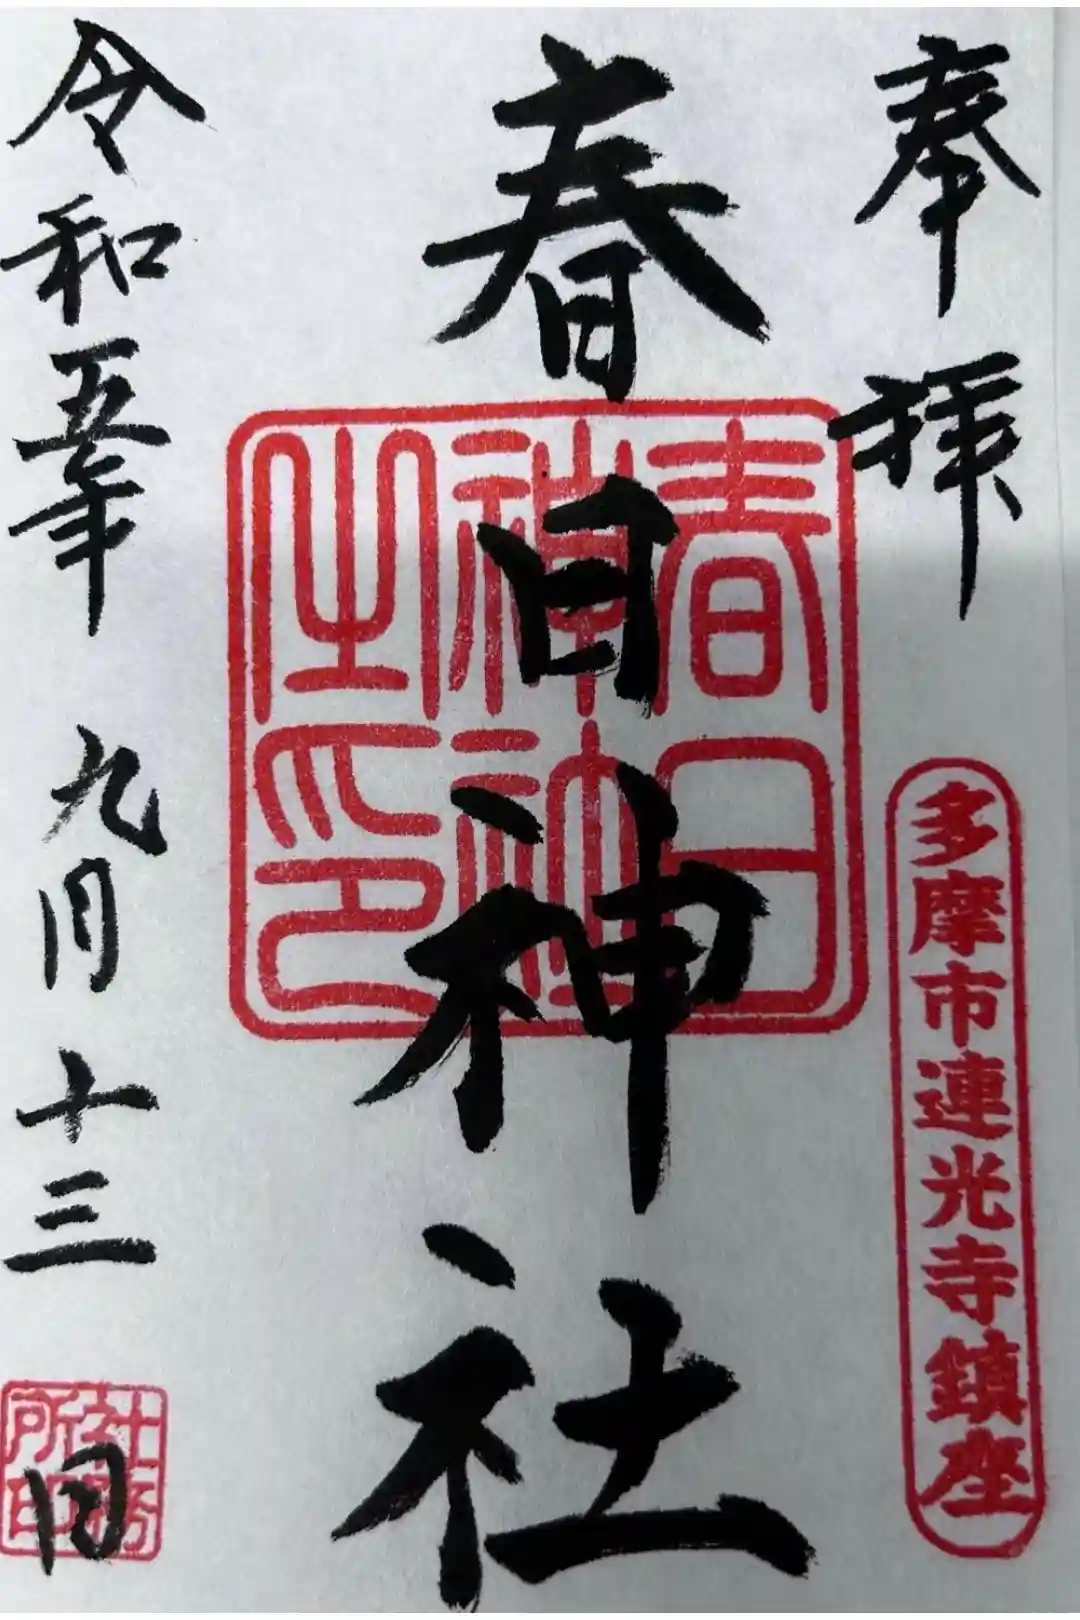 奉拝
多摩市連光寺鎮座
春日神社
春日
神社
之印
令和五年九月十三日
社務
所印